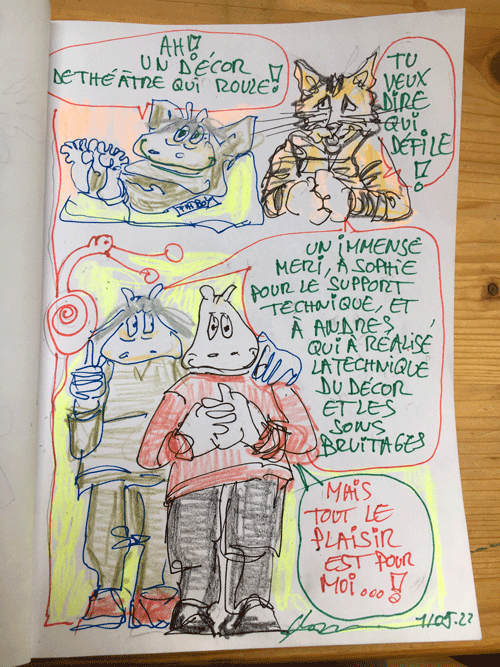 AH!
UN DÉCOR
DE THÉÂTRE QUI ROULE!
TU
VEUX
DIRE
QUI
DÉFILE
!
UN IMMENSE
MERI, À SOPHIE
POUR LE SUPPORT
TECHNIQUE, ET
À ANDRES,
QUI A RÉALISÉ
LA TECHNIQUE
DU DÉCOR
ET LES
SONS
BRUITAGES
MAIS
TOUT LE
PLAISIR
EST POUR
MOI...!